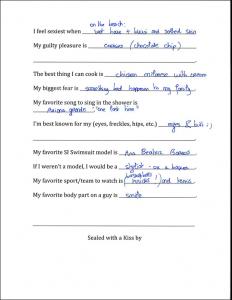 on the beach:
I feel sexiest when wet hair + bikini and salted skin
My guilty pleasure is cookies (chocolate chip)
The best thing I can cook is chicken milanese with
My biggest fear is something bad happen to my family
My favorite song to sing in the shower is
Ariana grande "one last time"
I'm best known for my (eyes, freckles, hips, etc.) eyes & butt ;)
My favorite SI Swimsuit model is Ana Beatriz Barros
If I weren't a model, I would be a stylist - or a
My favorite sport/team to watch is and tennis
My favorite body part on a guy is smile
Sealed with a Kiss by